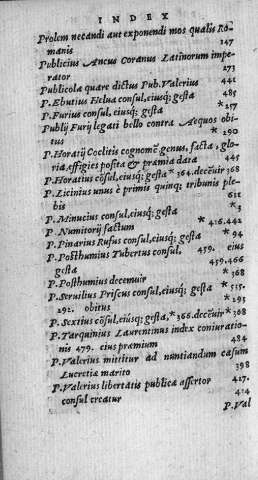 INDEX
Prolem necandi aut exponendi mos qualis Ro-
manis 147
Publicius Ancus Coranus Latinorum impe-
rator 273
Publicola quare dictus Pub. Valerius 441
P. Ebutius Helua consul, eiusq; gesta 485
P. Furius consul, eiusq; gesta * 257
Publij Furij legati bello contra Aequos obi-
tus * 290
P. Horatij Coclitis cognomē, genus, facta, glo-
ria, effigies posita & præmia data 445
P. Horatius cõsul, eiusq; gesta * 364. decēuir 368
P. Licinius unus è primis quinq; tribunis ple-
bis 612
P. Minucius consul, eiusq; gesta * 3
P. Numitorij factum * 416.442
P. Pinarius Rufus consul, eiusq; gesta * 94
P. Posthumius Tubertus consul, 459. eius
gesta 459.466
P. Posthumius decemuir * 368
P. Seruilius Priscus consul, eiusq; gesta * 515.
292. obitus * 295
P. Sextius cõsul, eiusq; gesta, * 366. decēuir * 368
P. Tarquinius Laurentinus index coniuratio-
nis 479. eius præmium 484
P. Valerius mittitur ad nuntiandum casum
Lucretiæ marito 398
P. Valerius libertatis publicæ assertor 427.
consul creatur 414
P. Val